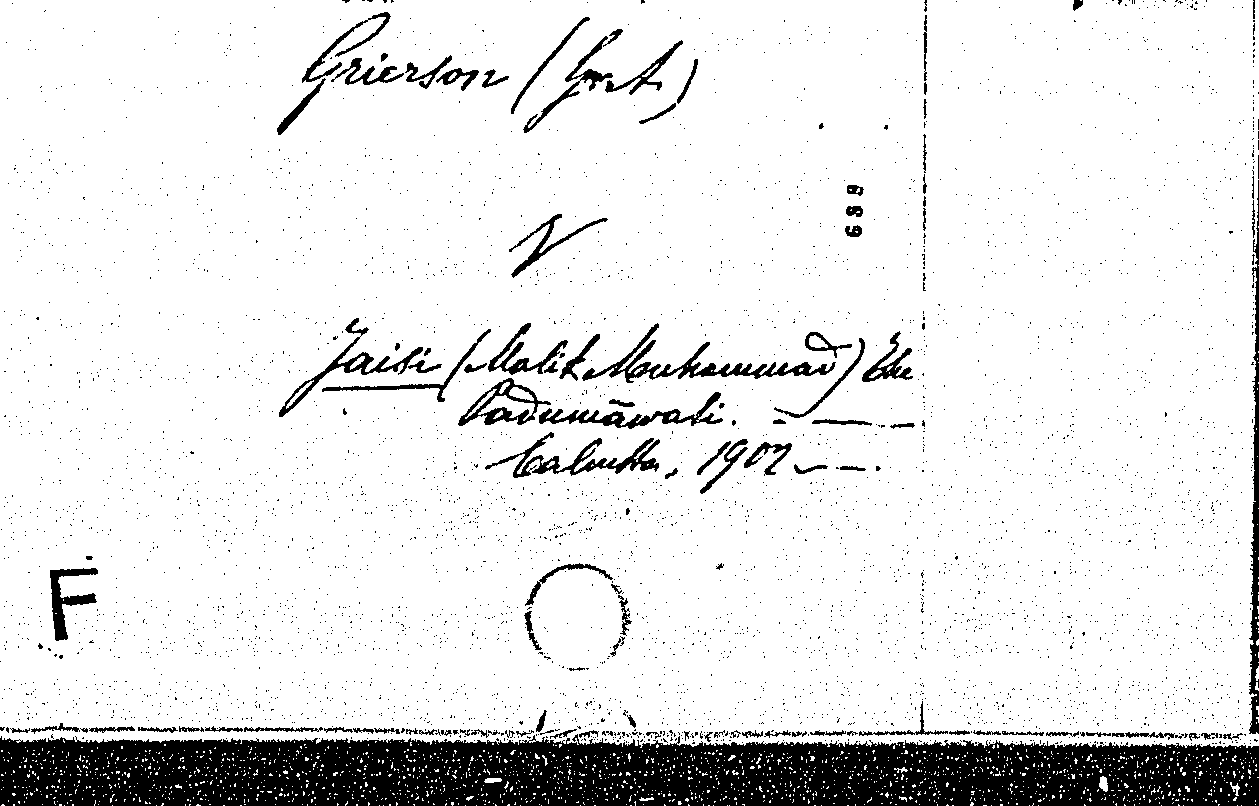 Grierson (G. A.)
689
V
Jaisi (Malik Muhammad) The
Padumāwati. - — -
Calcutta, 1907 - - .
F